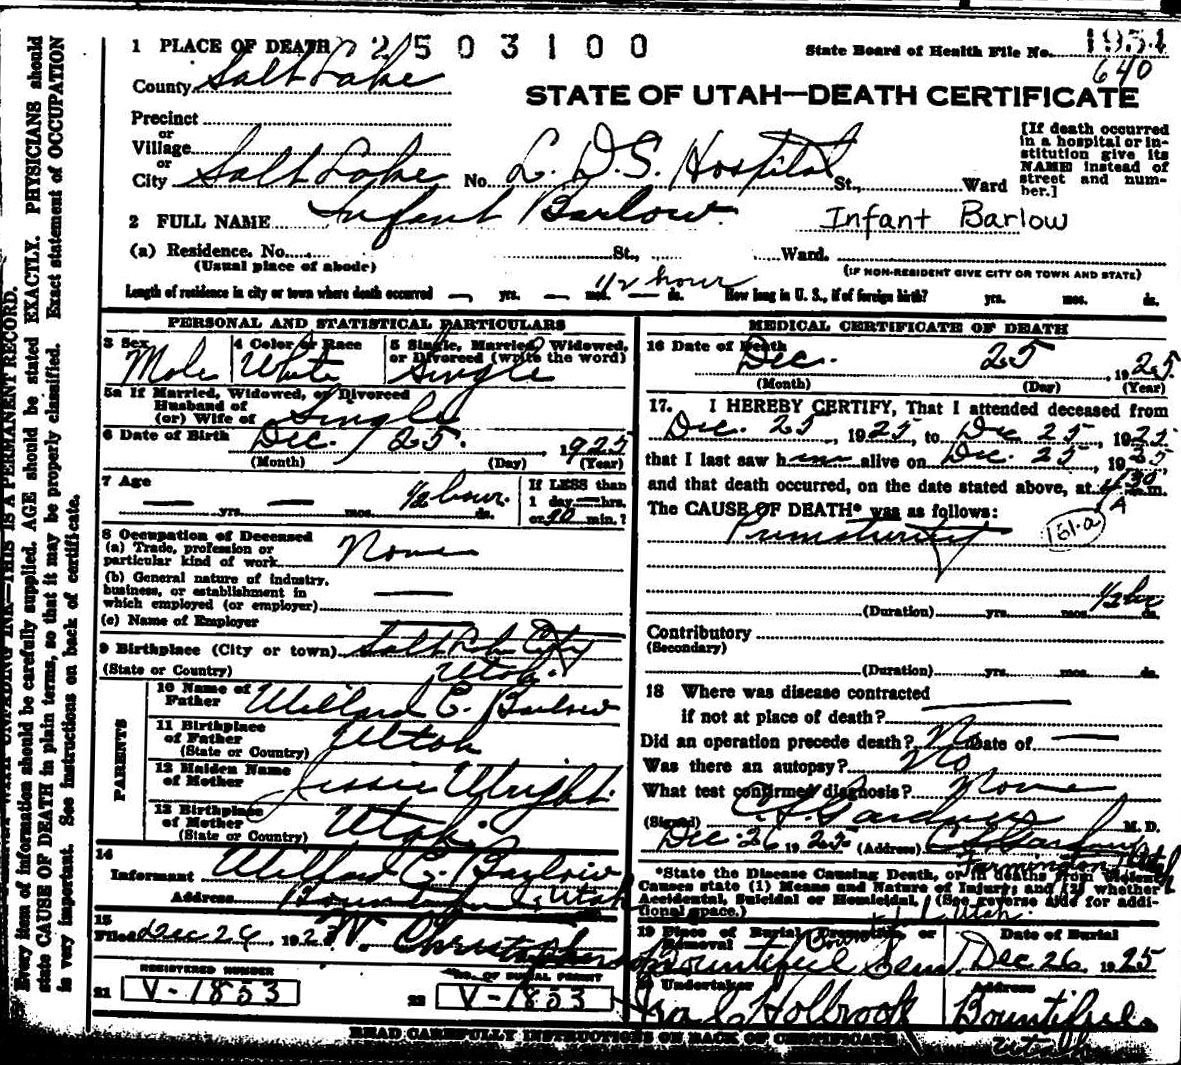 1 PLACE OF DEATH 2503100 State Board of Health File No. 1954
640
County Salt Lake
STATE OF UTAH—DEATH CERTIFICATE
Precinct
or
Village
or
City Salt Lake No. L. D. S. Hospital St., Ward
[If death occurred in a hospital or institution give its NAME instead of street and number.]
2 FULL NAME Infant Barlow Infant Barlow
(a) Residence. No. St., Ward.
(Usual place of abode) (IF NON-RESIDENT GIVE CITY OR TOWN AND STATE)
Length of residence in city or town where death occurred — yrs. — mos. — ds. 1/2 hour How long in U. S., if of foreign birth? yrs. mos. ds.
PERSONAL AND STATISTICAL PARTICULARS
3 Sex Male 4 Color or Race White 5 Single, Married, Widowed, or Divorced (write the word) Single
5a If Married, Widowed, or Divorced
Husband of
(or) Wife of Single
6 Date of Birth Dec. 25. 1925
(Month) (Day) (Year)
7 Age — yrs. — mos. 1/2 hour. ds. If LESS than 1 day — hrs. or 30 min.?
8 Occupation of Deceased
(a) Trade, profession or
particular kind of work None
(b) General nature of industry,
business, or establishment in
which employed (or employer) —
(c) Name of Employer —
9 Birthplace (City or town) Salt Lake City
(State or Country) Utah.
PARENTS
10 Name of Father Willard C. Barlow
11 Birthplace of Father (State or Country) Utah
12 Maiden Name of Mother Jessie Wright.
13 Birthplace of Mother (State or Country) Utah.
14
Informant Willard C. Barlow
Address Bountiful, Utah
15
Filed Dec 26, 192 W. Christopherson
REGISTERED NUMBER NO. OF BURIAL PERMIT
21 V-1853 22 V-1853
MEDICAL CERTIFICATE OF DEATH
16 Date of Death Dec. 25, 1925.
(Month) (Day) (Year)
17. I HEREBY CERTIFY, That I attended deceased from
Dec. 25, 1925, to Dec 25, 1925
that I last saw him alive on Dec. 25, 1925,
and that death occurred, on the date stated above, at 4 30 A m.
The CAUSE OF DEATH* was as follows:
Prematurity 161-a
(Duration) yrs. mos. 1/2 hr ds.
Contributory
(Secondary)
(Duration) yrs. mos. ds.
18 Where was disease contracted —
if not at place of death?
Did an operation precede death? No Date of —
Was there an autopsy? No
What test confirmed diagnosis? None
(Signed) C. S. Gardner M. D.
Dec. 26 1925 (Address) Farmington Utah
*State the Disease Causing Death, or in deaths from Violent
Causes state (1) Means and Nature of Injury; and (2) whether
Accidental, Suicidal or Homicidal. (See reverse side for additional space.)
Utah.
19 Place of Burial, Cremation or Removal Bountiful Cem. Date of Burial Dec 26 1925
20 Undertaker Holbrook Address Bountiful Utah
READ CAREFULLY INSTRUCTIONS ON BACK OF CERTIFICATE
THIS IS A PERMANENT RECORD.
Every item of information should be carefully supplied. AGE should be stated EXACTLY. PHYSICIANS should
state CAUSE OF DEATH in plain terms, so that it may be properly classified. Exact statement of OCCUPATION
is very important. See instructions on back of certificate.